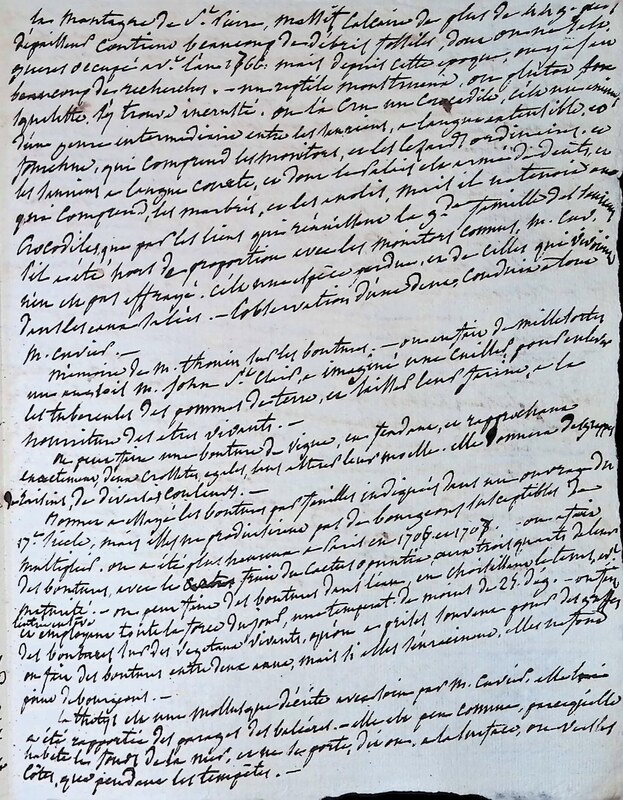 La montagne de St. Pierre, massif calcaire de plus de
dépaisseur contient beaucoup de débris fossiles, dont on ne s'est
gueres occupé avt. l'an 1766. mais depuis cette époque, on y a fait
beaucoup de recherches. - un reptile monstrueux, ou plutôt son
squelette, s'y trouve incrusté. on l'a cru un crocodile, cest un
d'un genre intermédiaire entre les sauriens, a langue extensible, et
fourchue, qui comprend les monitors, et les lesards ordinaires, et
les sauriens a langue courte, et dont le palais est armé de dents, et
qui comprend, les marbrés, et les anolis, mais il ne tenoit aux
crocodiles, que par les liens qui réunissent la gde. famille des sauriens
s'il a été hors de proportion avec les monitors connus, m. cuv.
n'en est pas effrayé. c'est une espèce perdue, et de celles qui vivoient
dans les eaux salées. - l'observation d'une dent, conduisit a tout
m. cuvier. -
Mémoire de m. thouin sur les boutures. - on en fait de mille sortes
un anglois m. John St. Clair, a imaginé une cuiller, pour enlever
les tubercules des pommes de terre, et laisser leur farine, a la
nourriture des etres vivants. -
on peut faire une bouture de vigne, en fendant, et rapprochant
exactement deux crossettes egales, sans altérer leur moelle. elle donnera des grappes
de raisins de diverses couleurs. -
a essayé les boutures par feuilles indiquées dans un ouvrage du
17e. siècle, mais elles ne produisirent pas de bourgeons susceptibles de
multiplier. on a été plus heureux a Paris en 1706 et 1707. - on a fait
des boutures, avec le fruit du cactus opuntia, aux trois quarts de leur
maturité. - on peut faire des boutures dans l'eau, en
et employant toute la force du jour, une températ. de moins de 25. dég. - on fait
des boutures sur des vegetaux vivants, qu'on a prises souvent pour des greffes
on fait des boutures entre deux eaux, mais si elles s'enracinent, elles ne font
point de bourgeons. -
La thetys est un mollusque décrit avec soin par m. Cuvier, elle
a été rapportée des parages des baléares. - elle est peu connue, parcequ'elle
habite les fonds de la mer, et ne se porte, dit on, a la surface, ou vers les
côtes, que pendant les tempêtes. -